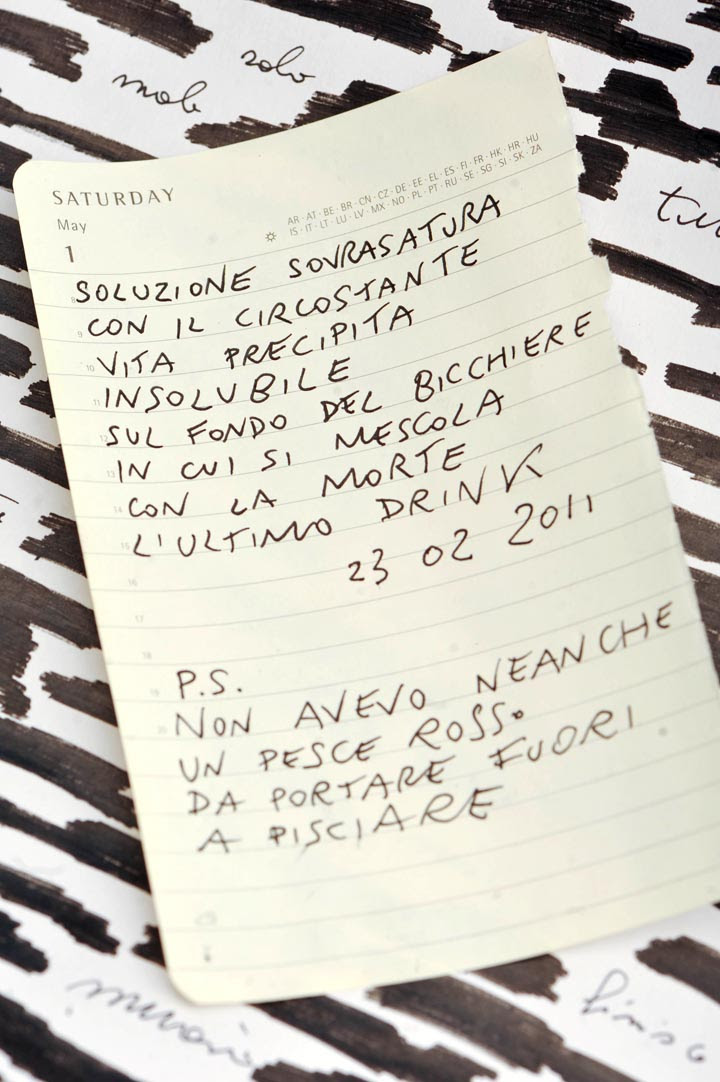 solo
mob
SATURDAY
May
1
AR · AT · BE · BR · CN · CZ · DE · EE · EL · ES · FI · FR · HK · HR · HU
IS · IT · LT · LU · LV · MX · NO · PL · PT · RU · SE · SG · SI · SK · ZA
8 SOLUZIONE SOVRASATURA
9 CON IL CIRCOSTANTE
10 VITA PRECIPITA
11 INSOLUBILE
12 SUL FONDO DEL BICCHIERE
13 IN CUI SI MESCOLA
14 CON LA MORTE
15 L'ULTIMO DRINK
16 23 02 2011
17
18
19 P.S.
20 NON AVEVO NEANCHE
UN PESCE ROSSO
DA PORTARE FUORI
A PISCIARE